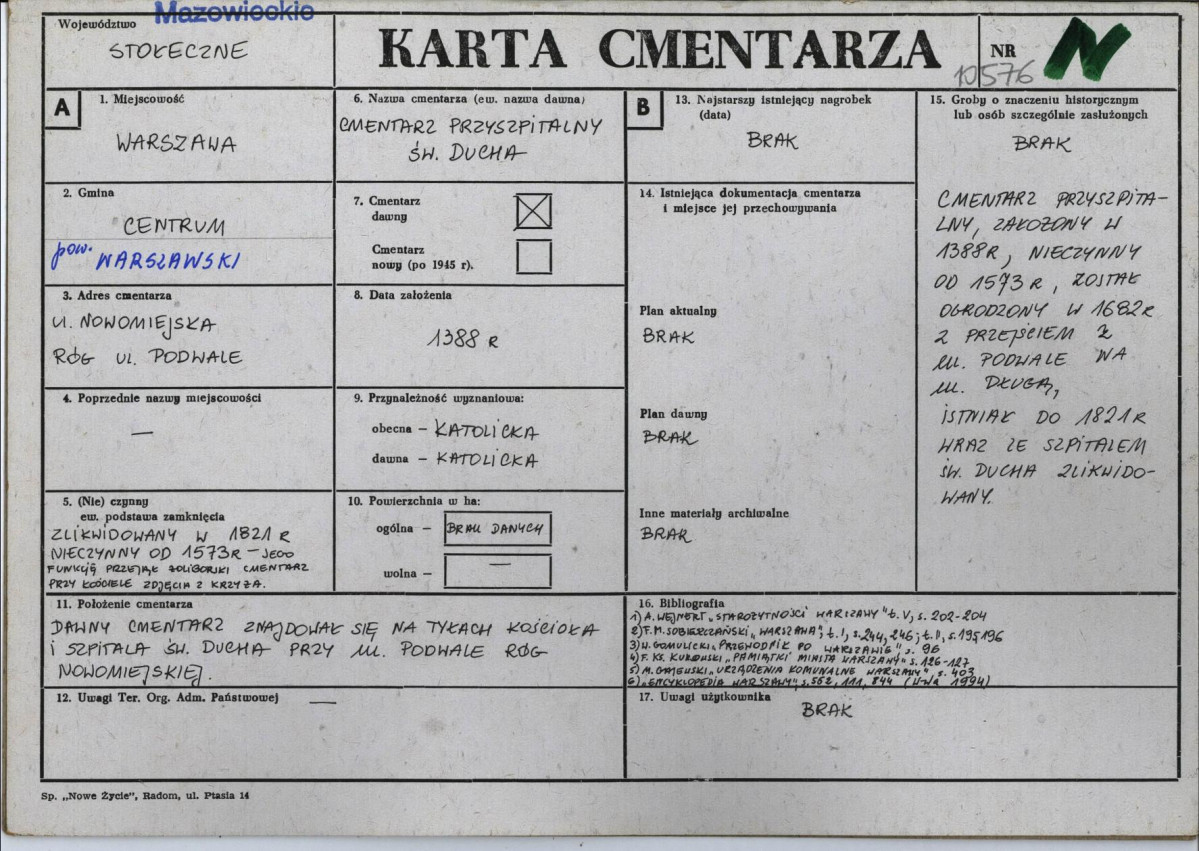 Mazowieckie
Województwo
STOŁECZNE
KARTA CMENTARZA
NR
10576
N
A
1. Miejscowość
WARSZAWA
2. Gmina
CENTRUM
pow. WARSZAWSKI
3. Adres cmentarza
ul. NOWOMIEJSKA
RÓG UL. PODWALE
4. Poprzednie nazwy miejscowości
—
5. (Nie) czynny
ew. podstawa zamknięcia
ZLIKWIDOWANY W 1821 R
NIECZYNNY OD 1573R – JEGO
FUNKCJĘ PRZEJĄŁ ŻOLIBORSKI CMENTARZ
PRZY KOŚCIELE ZDJĘCIA Z KRZYŻA.
6. Nazwa cmentarza (ew. nazwa dawna)
CMENTARZ PRZYSZPITALNY
ŚW. DUCHA
7. Cmentarz
dawny
Cmentarz
nowy (po 1945 r).
8. Data założenia
1388 R
9. Przynależność wyznaniowa:
obecna – KATOLICKA
dawna – KATOLICKA
10. Powierzchnia w ha:
ogólna – BRAK DANYCH
wolna – —
11. Położenie cmentarza
DAWNY CMENTARZ ZNAJDOWAŁ SIĘ NA TYŁACH KOŚCIOŁA
I SZPITALA ŚW. DUCHA PRZY UL. PODWALE RÓG
NOWOMIEJSKIEJ.
12. Uwagi Ter. Org. Adm. Państwowej —
B
13. Najstarszy istniejący nagrobek
(data)
BRAK
14. Istniejąca dokumentacja cmentarza
i miejsce jej przechowywania
Plan aktualny
BRAK
Plan dawny
BRAK
Inne materiały archiwalne
BRAK
15. Groby o znaczeniu historycznym
lub osób szczególnie zasłużonych
BRAK
CMENTARZ PRZYSZPITA-
LNY, ZAŁOŻONY W
1388R, NIECZYNNY
OD 1573 R, ZOSTAŁ
OGRODZONY W 1682R
Z PRZEJŚCIEM Z
UL. PODWALE NA
UL. DŁUGĄ,
ISTNIAŁ DO 1821R
WRAZ ZE SZPITALEM
ŚW. DUCHA ZLIKWIDO-
WANY.
16. Bibliografia
1) A. WEJNERT „STAROŻYTNOŚCI WARSZAWY" t. V, s. 202-204
2) F.M. SOBIESZCZAŃSKI „WARSZAWA", t. I, s. 244, 246; t. II, s. 195,196
3) W. GOMULICKI „PRZEWODNIK PO WARSZAWIE" s. 96
4) F. KS. KUROWSKI „PAMIĄTKI MIASTA WARSZAWY" s. 126-127
5) M. GAJEWSKI „URZĄDZENIA KOMUNALNE WARSZAWY" s. 403
6) „ENCYKLOPEDIA WARSZAWY", s. 562, 111, 844 (W-Wa 1994)
17. Uwagi użytkownika
BRAK
Sp. „Nowe Życie", Radom, ul. Ptasia 14